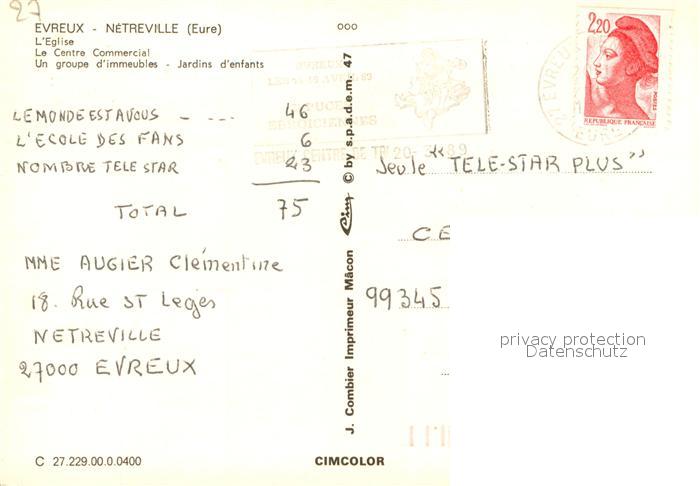 27
EVREUX - NÉTREVILLE (Eure)
L'Eglise
Le Centre Commercial
Un groupe d'immeubles - Jardins d'enfants
LE MONDE EST A VOUS - --- 46
L'ECOLE DES FANS 6
NOMBRE TELE STAR 23
TOTAL 75
MME AUGIER Clémentine
18. Rue ST Leger
NETREVILLE
27000 EVREUX
C 27.229.00.0.0400
ooo
J. Combier Imprimeur Mâcon Cim © by s.p.a.d.e.m. 47
CIMCOLOR
2,20
POSTES
REPUBLIQUE FRANÇAISE
EVREUX
EURE
Jeule "TELE-STAR PLUS"
CE
99345
privacy protection
Datenschutz